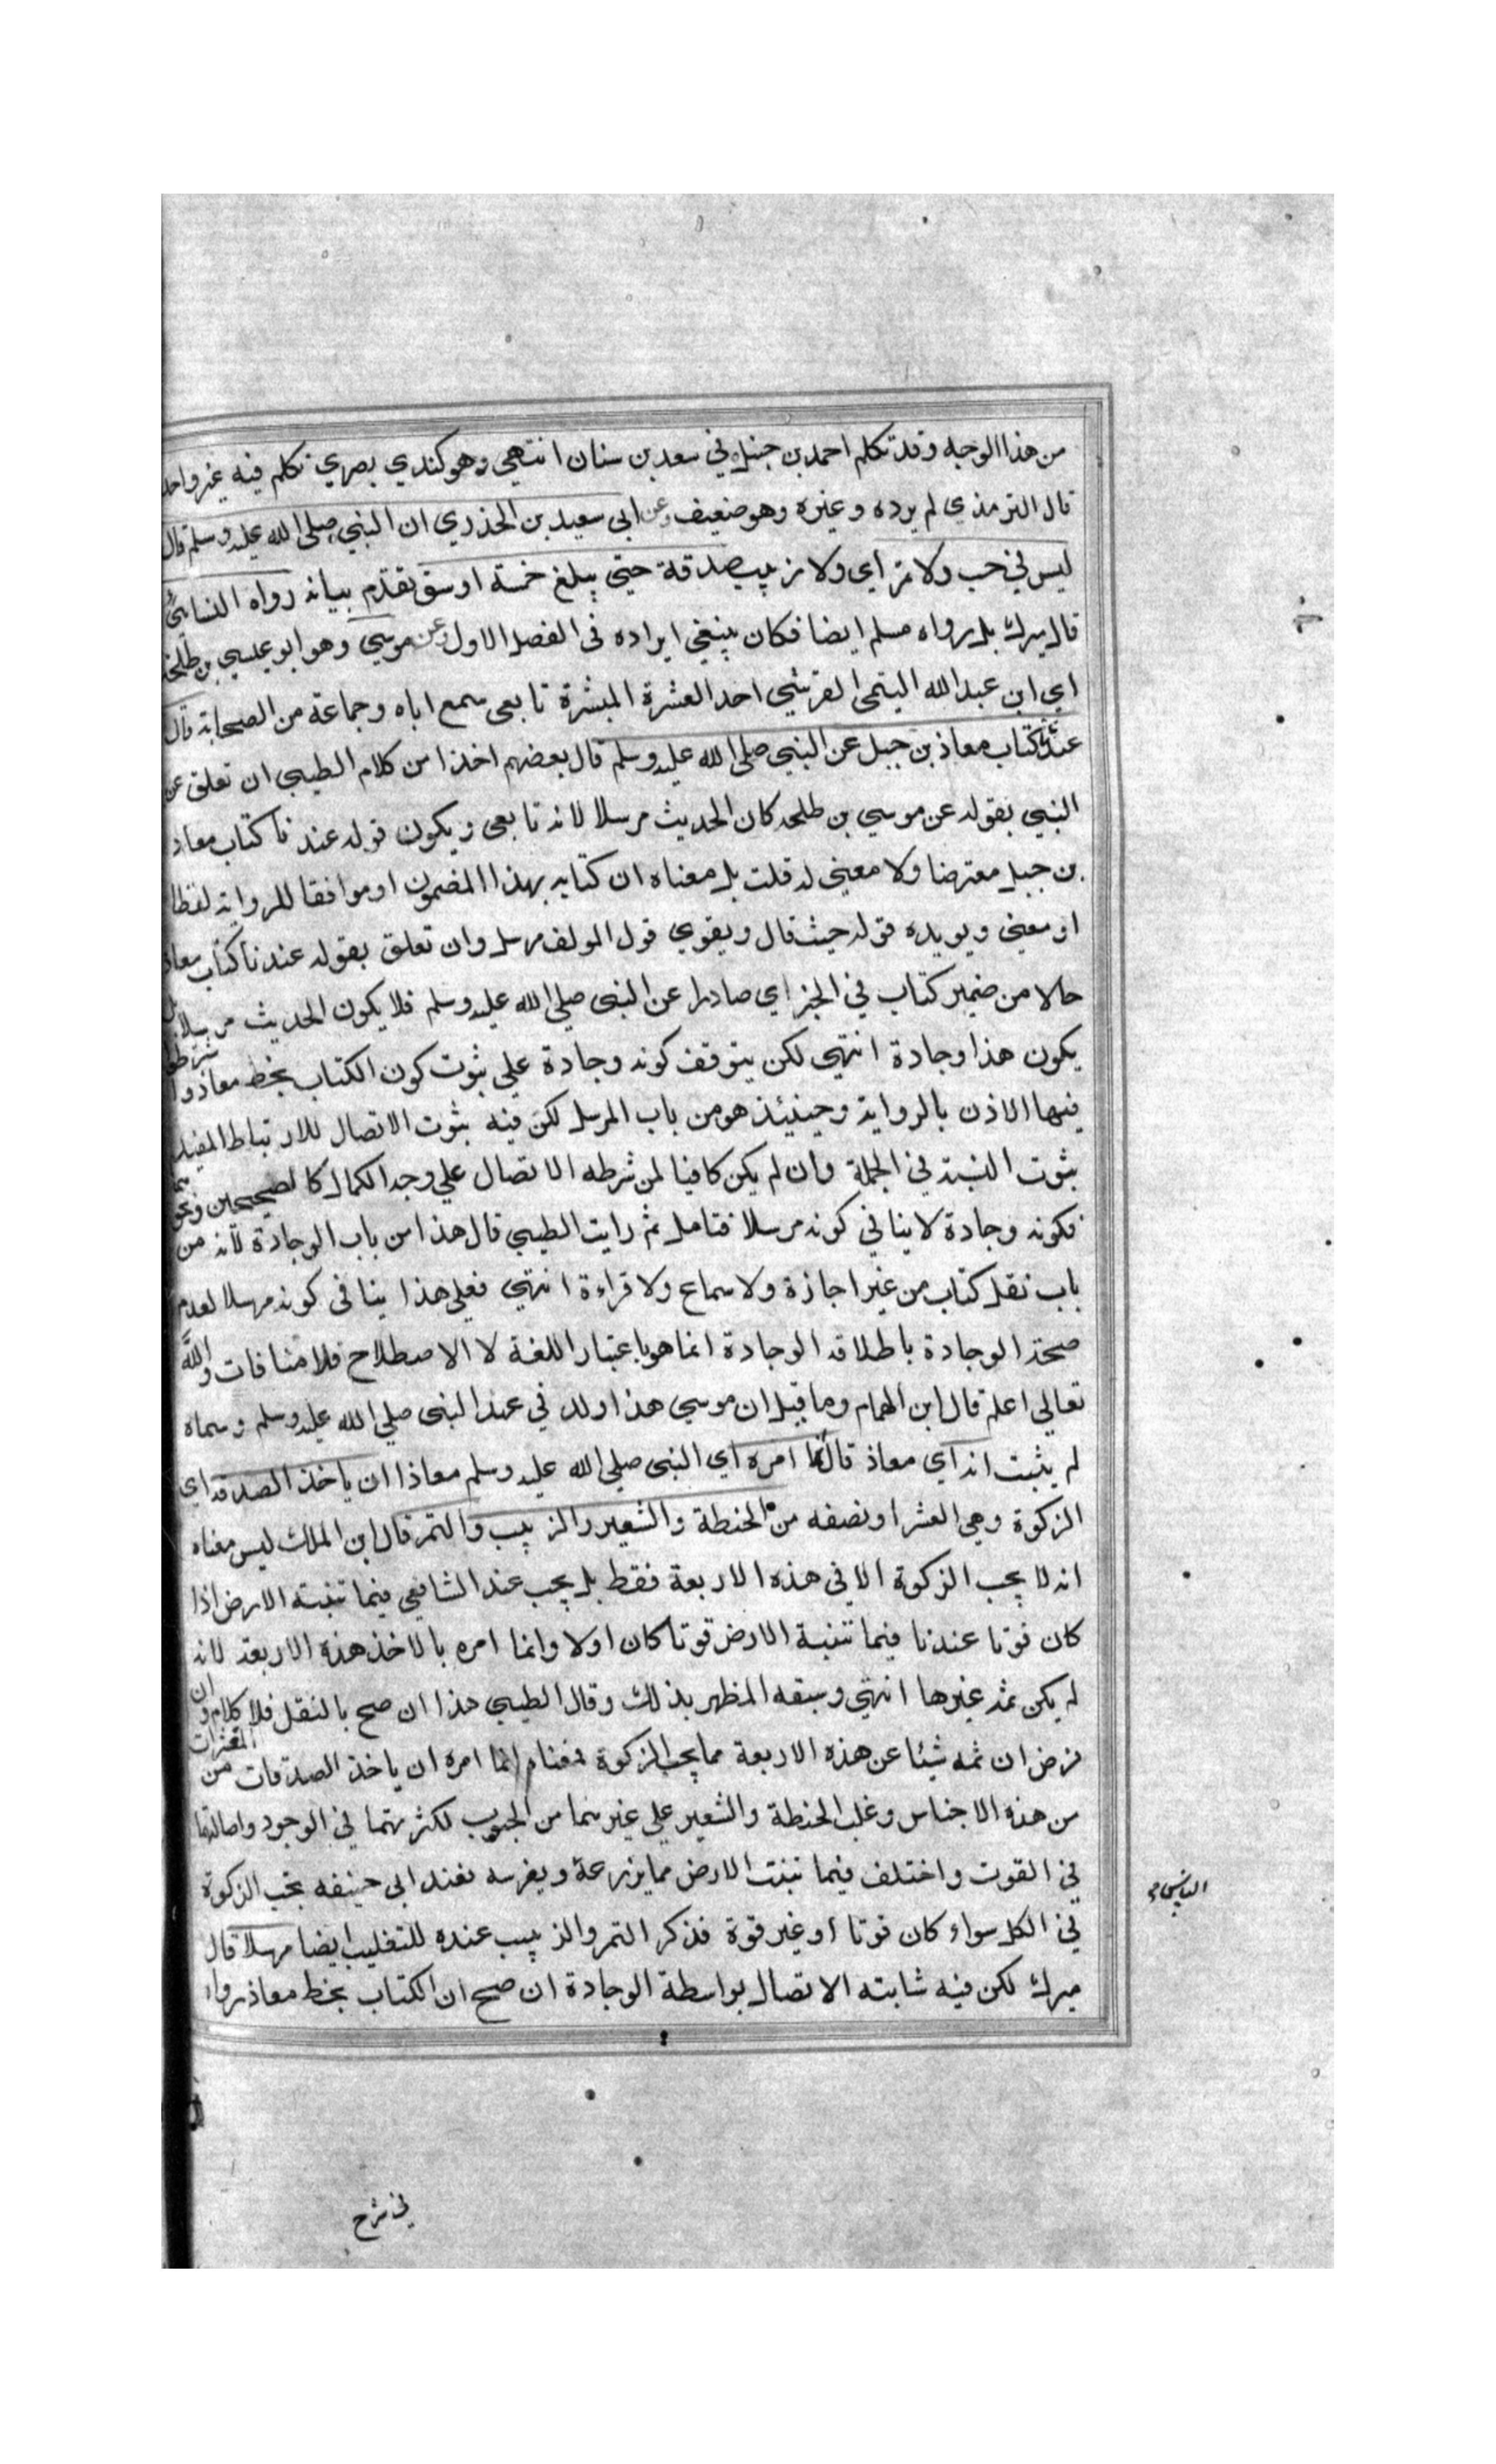 من هذا الوجه وقد تكلم احمد بن حنبل في سعد بن سنان انتهي وهو كندي بصري تكلم فيه غير واحد
قال الترمذي لم يرده وغيره وهو ضعيف وعن ابي سعيد بن الخدري ان النبي صلى الله عليه وسلم قال
ليس في حب ولا تمر اي ولا زبيب صدقة حتي يبلغ خمسة اوسق تقدم بيانه رواه النسائي
قال ميرك بل رواه مسلم ايضا فكان ينبغي ايراده في الفصل الاول وعن موسي وهو ابو عيسي بن طلحة
اي ابن عبد الله التيمي القرشي احد العشرة المبشرة تابعي سمع اباه وجماعة من الصحابة قال
عندنا كتاب معاذ بن جبل عن النبي صلى الله عليه وسلم قال بعضهم اخذا من كلام الطيبي ان تعلق عن
النبي بقوله عن موسي بن طلحه كان الحديث مرسلا لانه تابعي ويكون قوله عندنا كتاب معاذ
بن جبل معترضا ولا معني له قلت بل معناه ان كتابه بهذا المضمون او موافقا للرواية لفظا
او معني ويويده قوله حيث قال ويقوي قول المولف مرسل وان تعلق بقوله عندنا كتاب معاذ
حالا من ضمير كتاب في الخبر اي صادرا عن النبي صلي الله عليه وسلم فلا يكون الحديث مرسلا بل
يكون هذا وجادة انتهي لكن يتوقف كونه وجادة علي ثبوت كون الكتاب بخط معاذ وا شرطوا
فيها الاذن بالرواية وحينيئذ هو من باب المرسل لكن فيه ثبوت الاتصال للارتباط المفيد
ثبوت النسبة في الجملة وان لم يكن كافيا لمن شرطه الاتصال علي وجه الكمال كالصحيحين ونحو
فكونه وجادة لا ينافي كونه مرسلا فتامل ثم رايت الطيبي قال هذا من باب الوجادة لانه من
باب نقل كتاب من غير اجازة ولا سماع ولا قراءة انتهي فعلي هذا ينافي كونه مرسلا لعدم
صحة الوجادة باطلاقه الوجادة انما هو باعتبار اللغة لا الاصطلاح فلا منافات والله
تعالي اعلم قال ابن الهمام وما قيل ان موسي هذا ولد في عهد النبي صلي الله عليه وسلم وسماه
لم يثبت انه اي معاذ قال انما امره اي النبي صلي الله عليه وسلم معاذا ان ياخذ الصدقة اي
الزكوة وهي العشر او نصفه من الحنطة والشعير والزبيب والتمر قال ابن الملك ليس معناه
انه لا يجب الزكوة الا في هذه الاربعة فقط بل يجب عند الشافعي فيما تنبته الارض اذا
كان قوتا عندنا فيما تنبته الارض قوتا كان اولا وانما امره بالاخذ هذه الاربعة لانه
لم يكن ثمه غيرها انتهي وسبقه المظهر بذلك وقال الطيبي هذا ان صح بالنقل فلا كلام وان
فرض ان ثمه شيئا عن هذه الاربعة مما يجب الزكوة فمعناه انما امره ان ياخذ الصدقات من المعشرات
من هذه الاجناس وغلب الحنطة والشعير علي غيرهما من الحبوب لكثرتهما في الوجود واصالتهما
في القوت واختلف فيما تنبت الارض مما يزرعه ويغرسه فعند ابي حنيفه يجب الزكوة
في الكل سواء كان قوتا او غير قوة فذكر التمر والزبيب عنده للتغليب ايضا مرسلا قال
ميرك لكن فيه شابته الاتصال بواسطة الوجادة ان صح ان الكتاب بخط معاذ رواه
في شرح